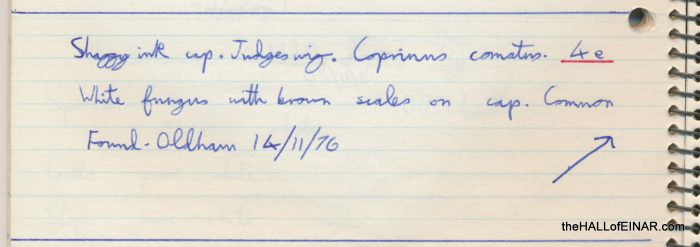 Shaggy ink cap. Judges wig. Coprinus comatus. 4e
White fungus with brown scales on cap. Common
Found - Oldham 14/11/76
theHALLofEINAR.com